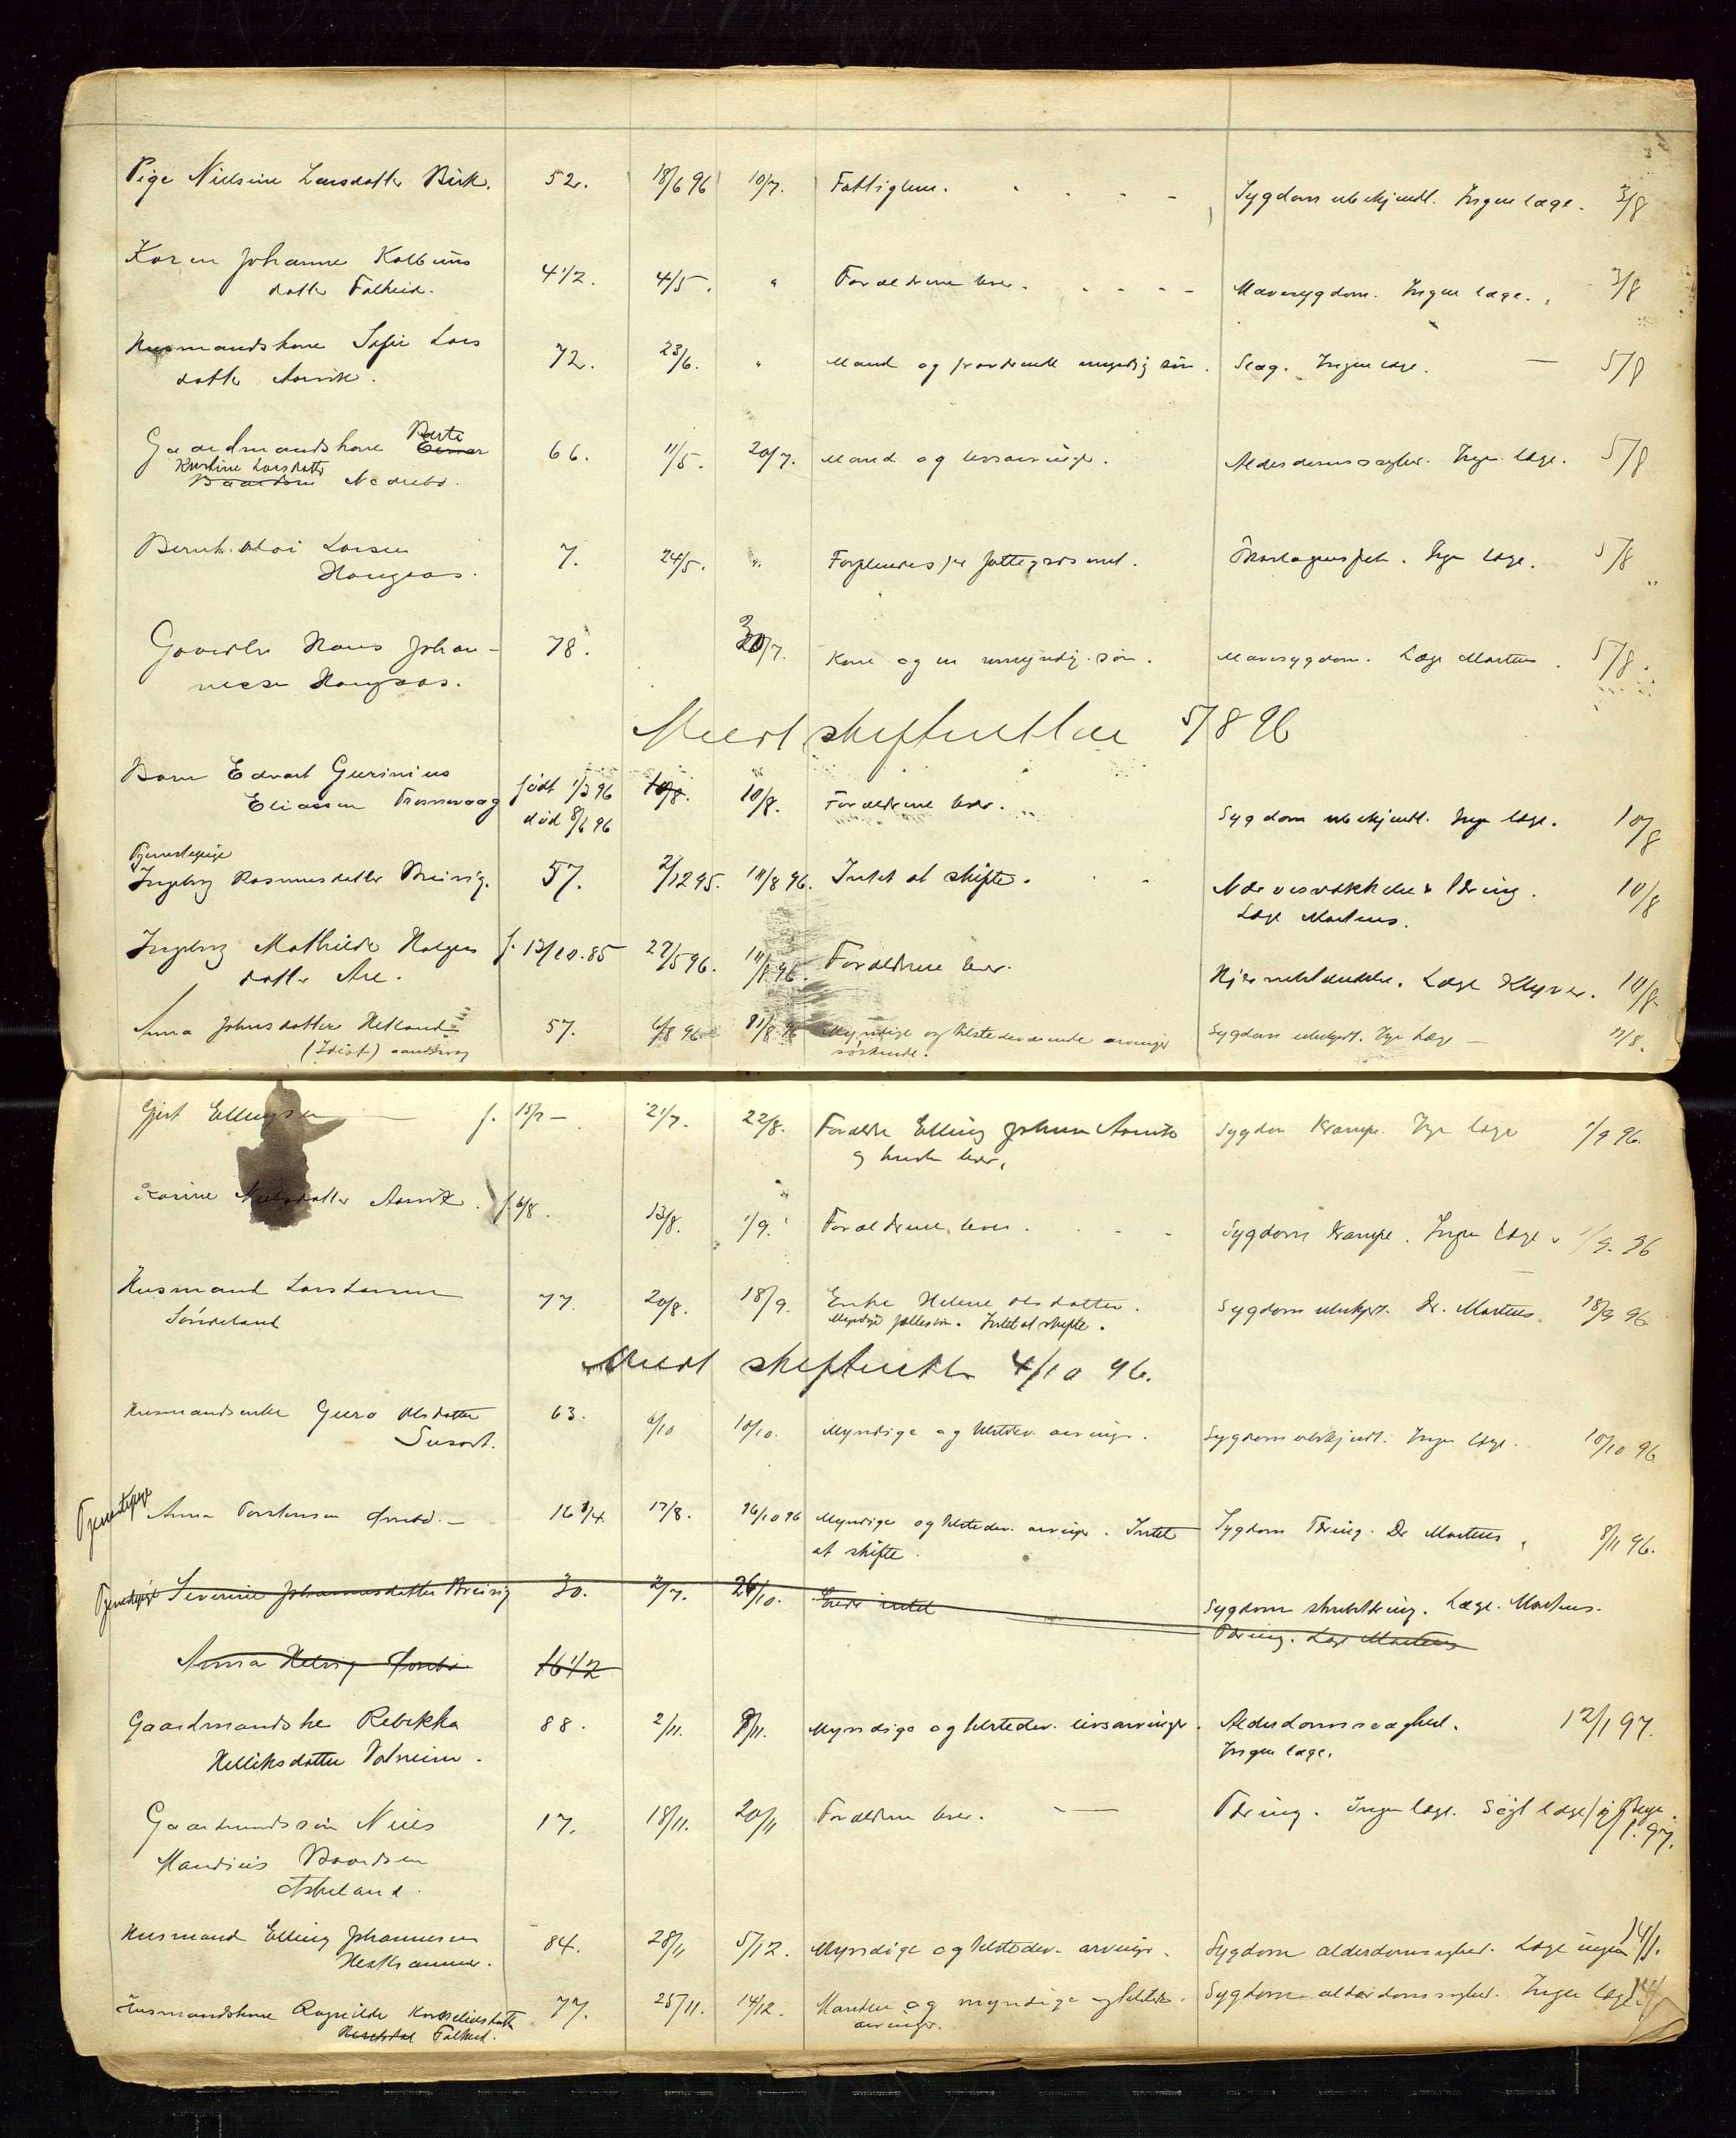 Pige Nilsine Larsdatter Birk. 52. 18/6 96 10/7. Fattiglem. Sygdom ubekjendt. Ingen læge. 3/8
Karen Johanne Kolbeins
datter Falkeid. 4 1/2. 4/5. " Forældrene lever. Mavesygdom. Ingen læge. 3/8
Husmandskone Sofie Lars
datter Aarvik. 72. 23/6. " Mand og fraværende myndig søn. Slag. Ingen læge. 5/8
Gaardmandskone Berte
Kristine Larsdatter
Nedrebø. 66. 11/5. 20/7. Mand og livsarvinger. Alderdomssvaghed. Ingen læge. 5/8
Bernh. Olai Larsen
Haugaas. 7. 24/5. " Forpleiedes per fattigvæsenet. Ingen læge. 5/8
Gaardbr Hans Johan-
nesse Haugaas. 78. 30/7. Kone og en umyndig søn. Mavesygdom. Læge Martens. 5/8.
Meldt skifteretten 5/8 96
Barn Edvart Gurinius
Eliassen Trosnavaag født 1/3 96 10/8. 10/8. Forældrene lever. Sygdom ubekjendt. Ingen læge. 10/8
død 8/6 96
Tjenestepige
Ingeborg Rasmusdatter Breivig. 57. 2/12 95. 11/8 96. Intet at skifte. Tæring. 10/8
Læge Martens.
Ingeborg Mathilde Halges
datter Are. f. 13/10.85 27/5 96. 11/8 96. Forældrene lever. Læge Klyver. 10/8.
Anna Johnsdatter Hetland 57. 6/8 96. 11/8 96 Myndige og tilstedeværende arvinger Sygdom ubekjendt. Ingen Læge - 11/8.
(Idiot) aandssvag søskende.
Gjert Ellingsen f. 15/7 - 21/7. 22/8. Forældre Elling Johnsen Aarvik Sygdom Krampe. Ingen læge 1/9 96.
og hustru lever.
Karine Nielsdatter Aarvik. f. 6/8. 13/8. 1/9. Forældrene lever. Sygdom Krampe. Ingen læge. 1/9. 96
Husmand Lars Larsen
Søndeland 77. 20/8. 18/9. Enke Helene Olsdatter. Sygdom ubekjendt. Dr. Martens 18/9 96
Myndige fællesbørn. Intet at skifte.
Meldt skifteretten 4/10 96.
Husmandsenke Guro Olsdatter 63. 6/10 10/10. Myndige og tilstedev. arvinger. Sygdom ubekjendt. Ingen læge. 10/10 96
Susort.
Tjenestepige Anna Torstensen Ørnebø. - 16 1/4. 17/8. 26/10 96 Myndige og tilstedev. arvinger. Intet Sygdom Tæring. Dr Martens 8/11 96.
at skifte.
Tjenestepige Severine Johannesdatter Breivig 30. 2/7. 26/10. Eiede intet Sygdom strubetæring. Læge Martens.
Tæring. Læge Martens
Anna Helvig Ørnebø 16 1/2
Gaardmandske Rebekka 88. 2/11. 9/11. Myndige og tilstedev. livsarvinger. Alderdomssvaghed. 12/1 97.
Helliksdatter Vatneim. Ingen læge.
Gaardmandssøn Niels 17. 18/11. 20/11 Forældrene lever. Tæring. Ingen læge. Søgt læge
Mandius Baardsen 1. 97.
Askeland.
Husmand Elling Johannesen 84. 28/11 5/12. Myndige og tilstedev. arvinger. Sygdom alderdomssvaghed. Læge ingen 14/1.
Hesthammer.
Husmandskone Ragnilde Korneliusdatter 77. 25/11. 14/12. Manden og myndige og tilstedev. Sygdom alderdomssvaghed. Ingen læge. 14/1
Falkeid. arvinger.